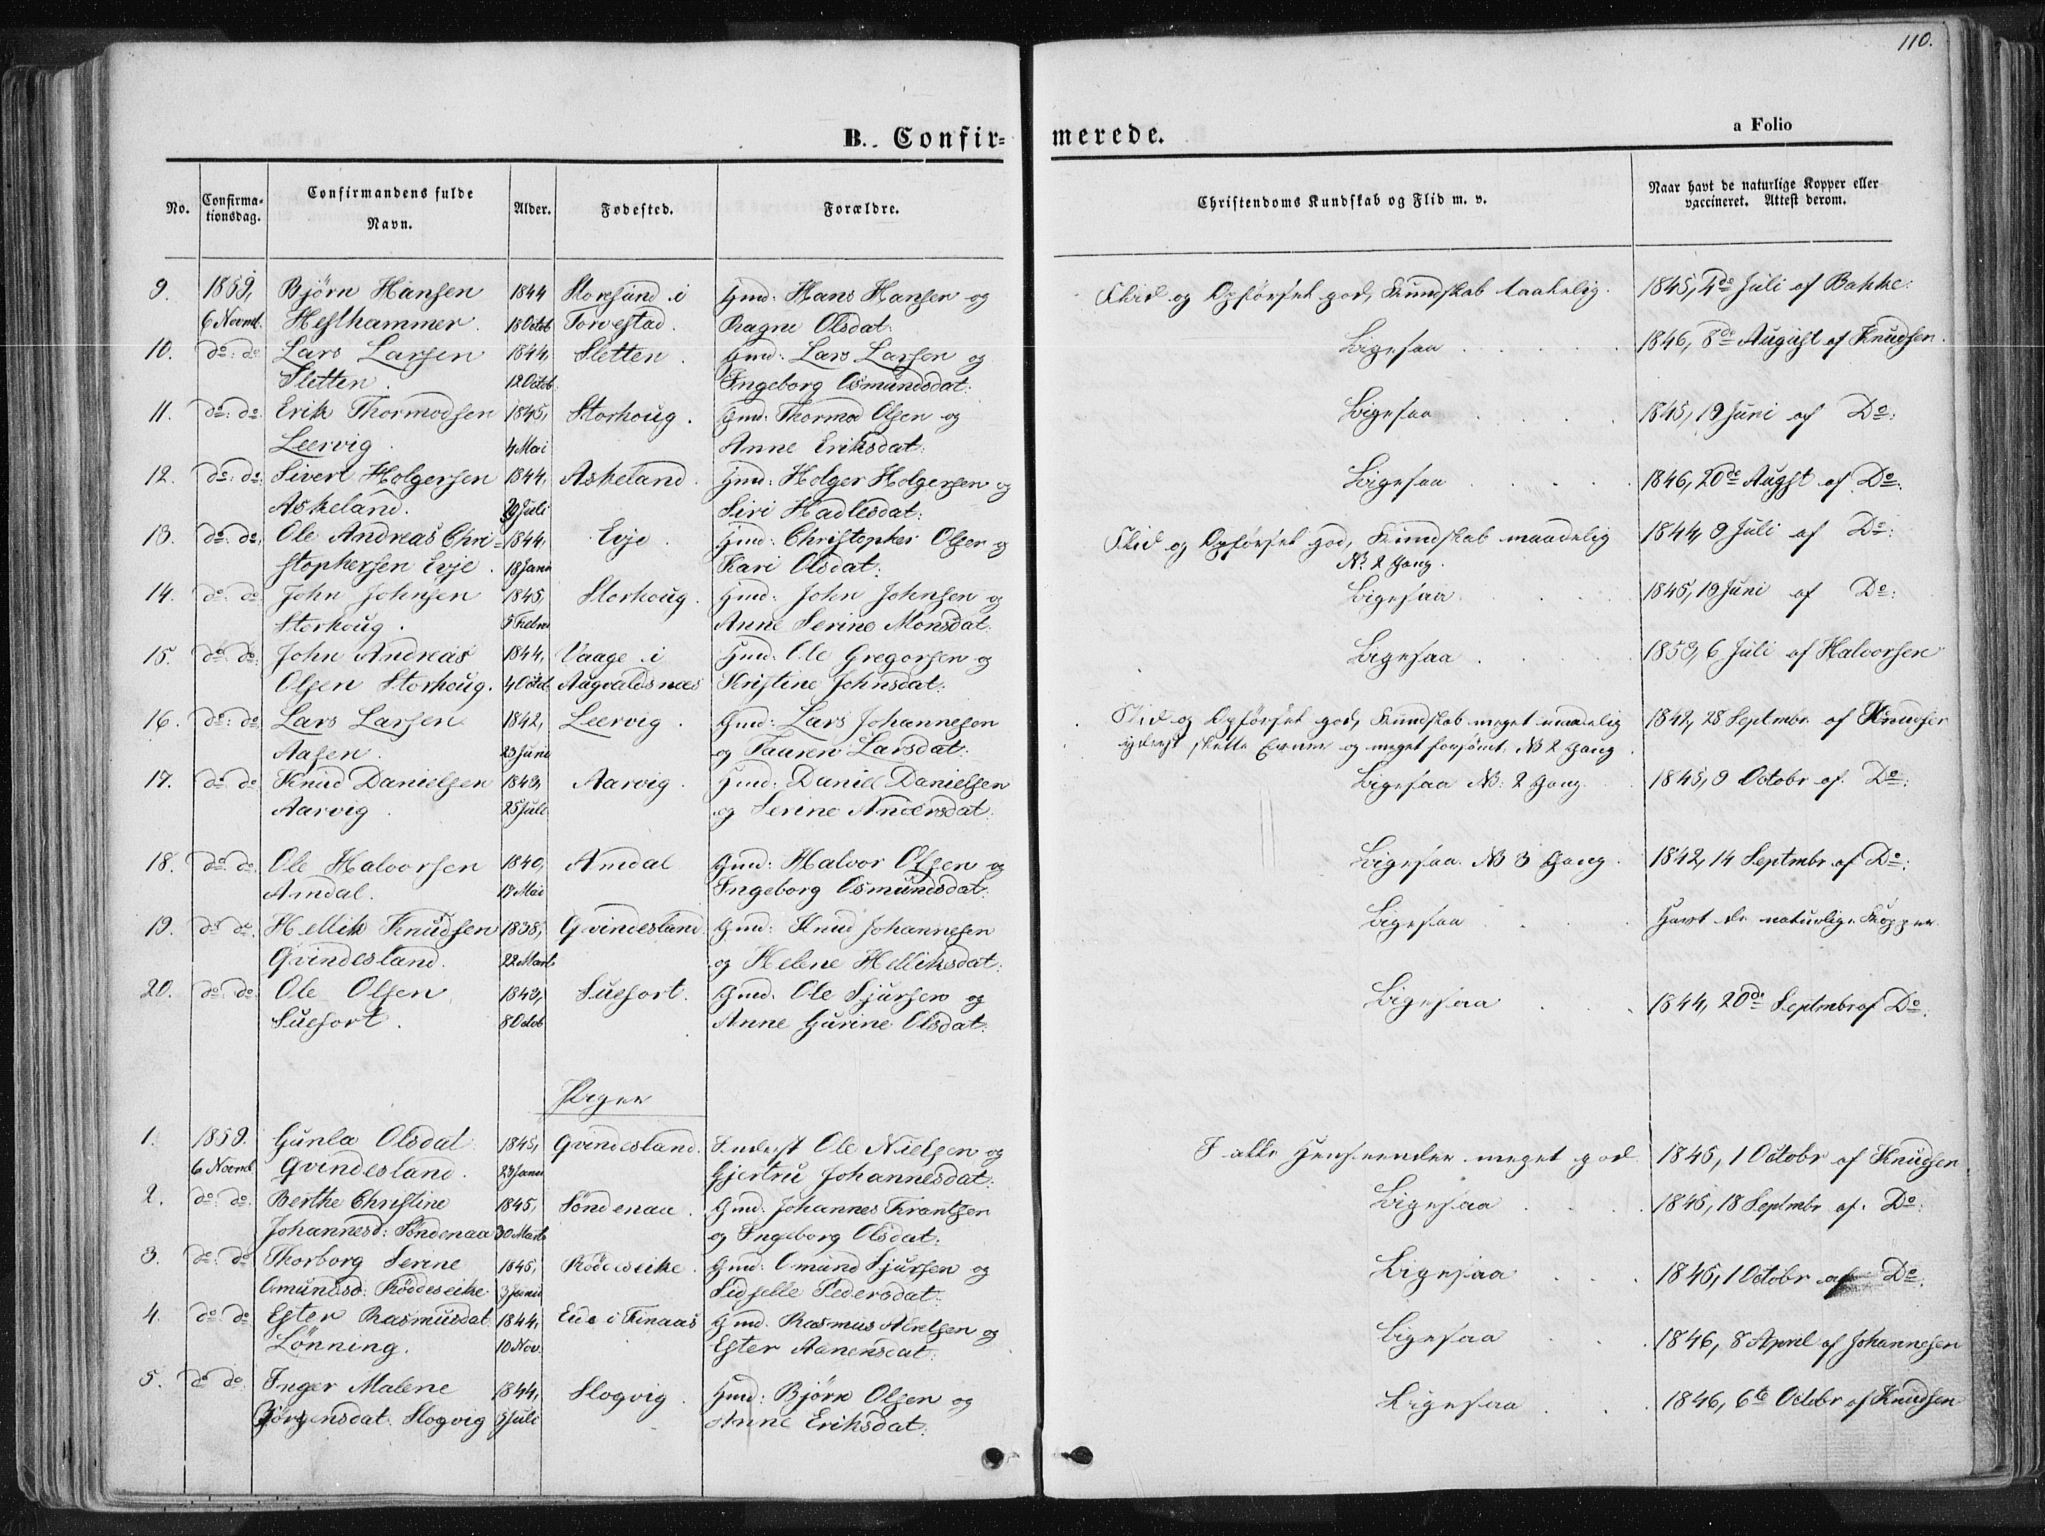 110.
B. Confirmerede.
a Folio
No.
Confirmationsdag.
Confirmandens fulde Navn.
Alder.
Fødested.
Forældre.
Christendoms Kundskab og Flid m. v.
Naar havt de naturlige Kopper eller vaccineret. Attest derom.
9. 1859, Bjørn Hansen 1844 Storesund i Gmd: Hans Hansen og Flid og Opførsel god, Kundskab taalelig. 1845, 4de Juli af Bakke.
6 Novmb. Hesthammer. 18 Octob Torvestad. Ragne Olsdat:
10. do: do Lars Larsen 1844 Sletten. Gmd: Lars Larsen og Ligesaa 1846, 8de August af Knudsen.
Sletten. 12 Octob. Ingeborg Osmundsdat:
11. do: do. Erik Thormodsen 1845, Storhoug. Gmd: Thormod Olsen og Ligesaa 1845, 19 Juni af Do:
Leervig. 4 Mai Anne Eriksdat:
12. do: do. Sivert Holgersen 1844, Askeland. Gmd: Holger Holgersen og Ligesaa 1846, 20de Augst af Do:
Askeland. 29 Juli Siri Hadlesdat:
13. do: do. Ole Andreas Chri- 1844, Evje. Gmd: Christopher Olsen og Flid og Opførsel god, Kundskab maadelig 1844, 9 Juli af Do:
stophersen Evje. 18 Janu Kari Olsdat: NB 2 Gang.
14. do: do. John Johnsen 1845, Storhoug. Gmd: John Johnsen og Ligesaa 1845, 19 Juni af Do:
Storhoug. 5 Febru Anne Serine Monsdat:
15. do: do. John Andreas 1844, Vaage i Gmd: Ole Gregorsen og Ligesaa 1850, 6 Juli af Halvorsen
Olsen Storhoug. 4 Octob. Augvaldsnæs Kristine Johnsdat:
16. do: do. Lars Larsen 1842, Leervig. Gmd: Lars Johannesen Flid og Opførsel god, Kundskab meget maadelig 1842, 28 Septmbr af Knudsen
Aasen. 23 Juni og Taaren Larsdat: yderst slette Evner og meget forsømt. NB 2 Gang.
17. do: do Knud Danielsen 1843, Aarvig. Gmd: Daniel Danielsen Ligesaa NB: 2 Gang. 1845, 9 Octobr af. Do:
Aarvig. 25 Juli og Serine Andersdat:
18. do: do. Ole Halvorsen 1840, Amdal Gmd: Halvor Olsen og Ligesaa NB 3 Gang. 1842, 14 Septmbr af Do:
Amdal. 17 Mai Ingeborg Osmundsdat:
19. do: do. Hellik Knudsen 1838, Gvindesland Gmd: Knud Johannesen Ligesaa Havt de naturlige Kopper.
Gvindesland. 22 Marts og Helene Helliksdat:
20. do: do: Ole Olsen 1843, Suefort. Gmd: Ole Sjursen og Ligesaa 1844, 20de Septmbr af Do:
Suefort. 8 Octob Anne Gurine Olsdat:
Piger
1. 1859. Gunla Olsdat 1845, Gvindesland. Inderst Ole Nielsen og I alle Henseender meget god 1845, 1 Octobr af Knudsen
6 Novmb Gvindesland. 23 Janu Gjertru Johannesdat:
2. do: do: Berthe Christine 1845, Söndenaa. Gmd: Johannes Frantzen Ligesaa 1845, 18 Septmbr af. Do:
Johannesd: Söndenaa 30 Marts og Ingeborg Olsdat:
3. do: do: Thorborg Serine 1845, Rödeseike. Gmd: Omund Sjursen og Ligesaa 1845, 1 Octobr af Do:
Omundsd: Röddeseike 3 Janu Sidselle Pedersdat:
4. do: do: Ester Rasmusdat 1844, Eide i Finaas Gmd: Rasmus og Ligesaa 1846, 8 April af Johannesen
Lönning. 10 Nov. Ester Aanensdat:
5. do: do: Inger Malene 1844, Slogvig. Gmd: Bjørn Olsen og Ligesaa 1846, 6te Octobr af Knudsen
Börgensdat. Slogvig 5 Juli Anne Eriksdat: